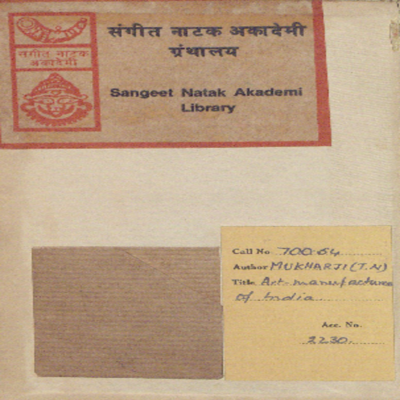 संगीत नाटक अकादेमी
ग्रंथालय
संगीत नाटक
अकादेमी
Sangeet Natak Akademi
Library
Call No. 700.54
Author MUKHARJI (T.N)
Title Art manufactures
of India
Acc. No.
2230